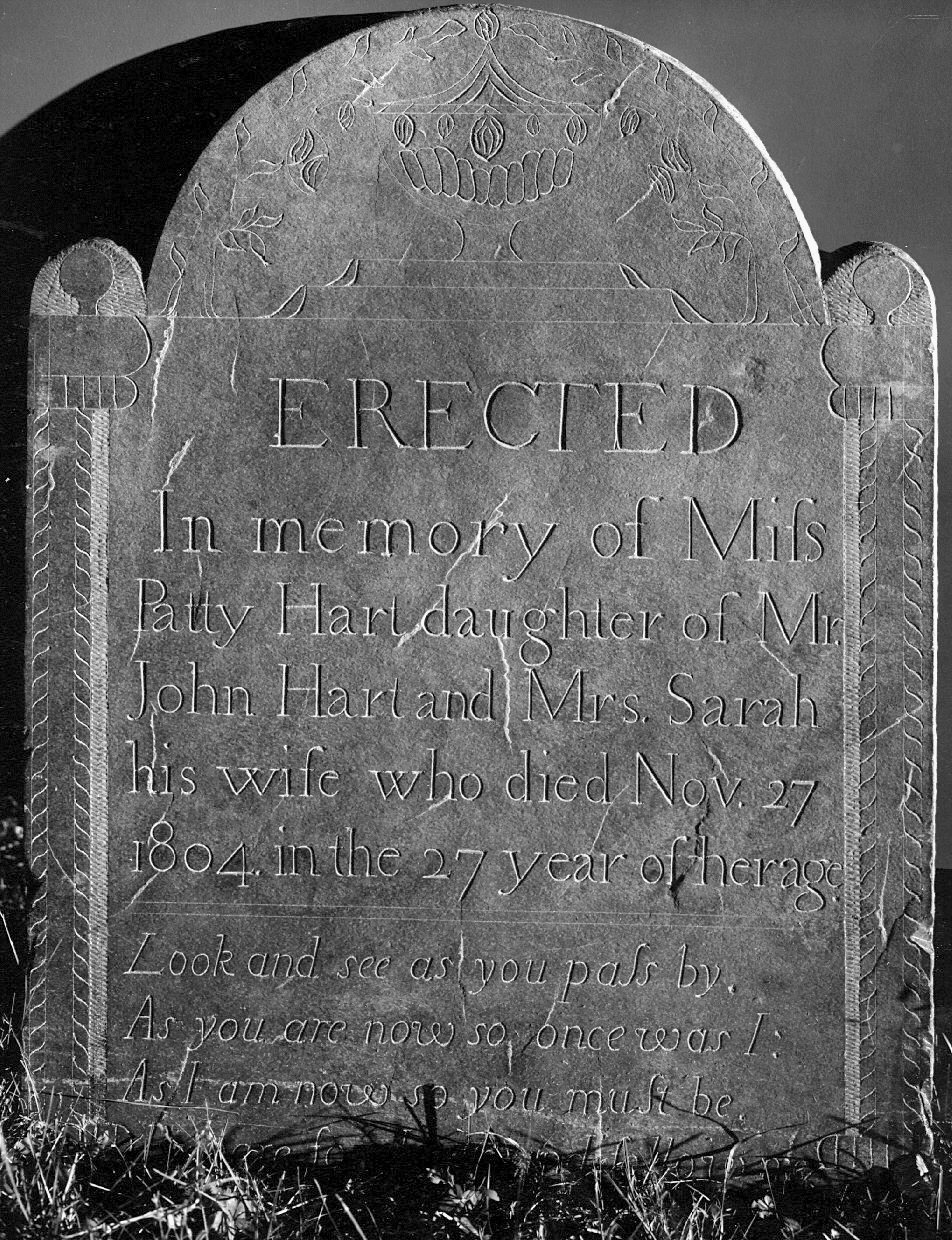 ERECTED
In memory of Miſs
Patty Hart daughter of Mr.
John Hart and Mrs. Sarah
his wife who died Nov. 27
1804. in the 27 year of her age
Look and see as you paſs by,
As you are now so once was I:
As I am now so you muſt be.